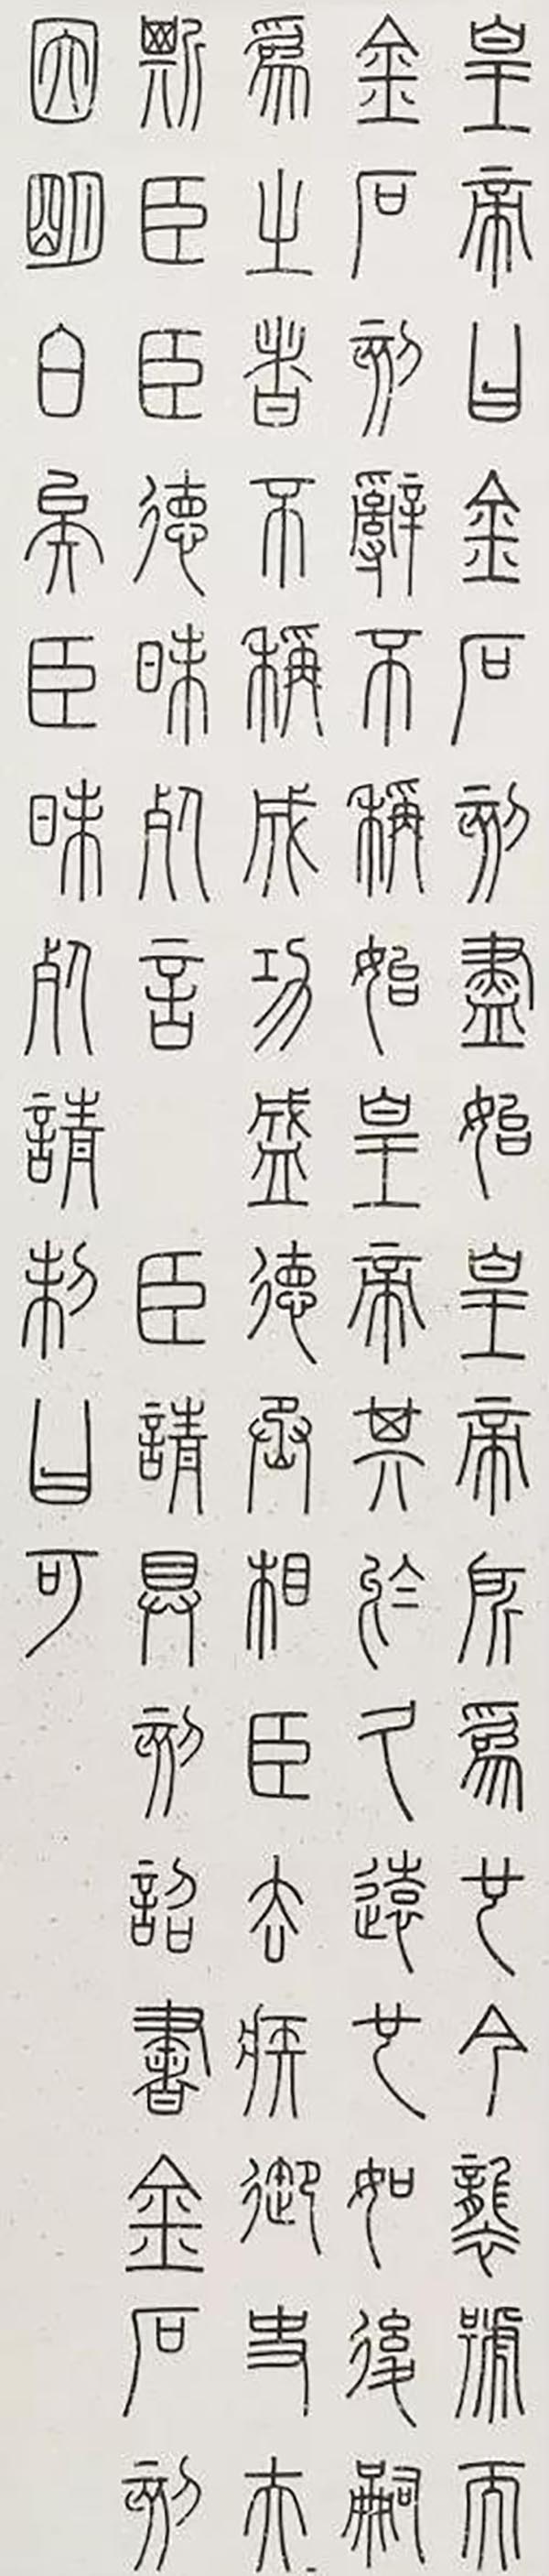 皇帝曰金石刻盡始皇帝所爲也今襲號而
金石刻辭不稱始皇帝其於久遠也如後嗣
爲之者不稱成功盛德丞相臣去疾御史夫
斯臣臣德昧死言 臣請具刻詔書金石刻
因明白矣臣昧死請制曰可